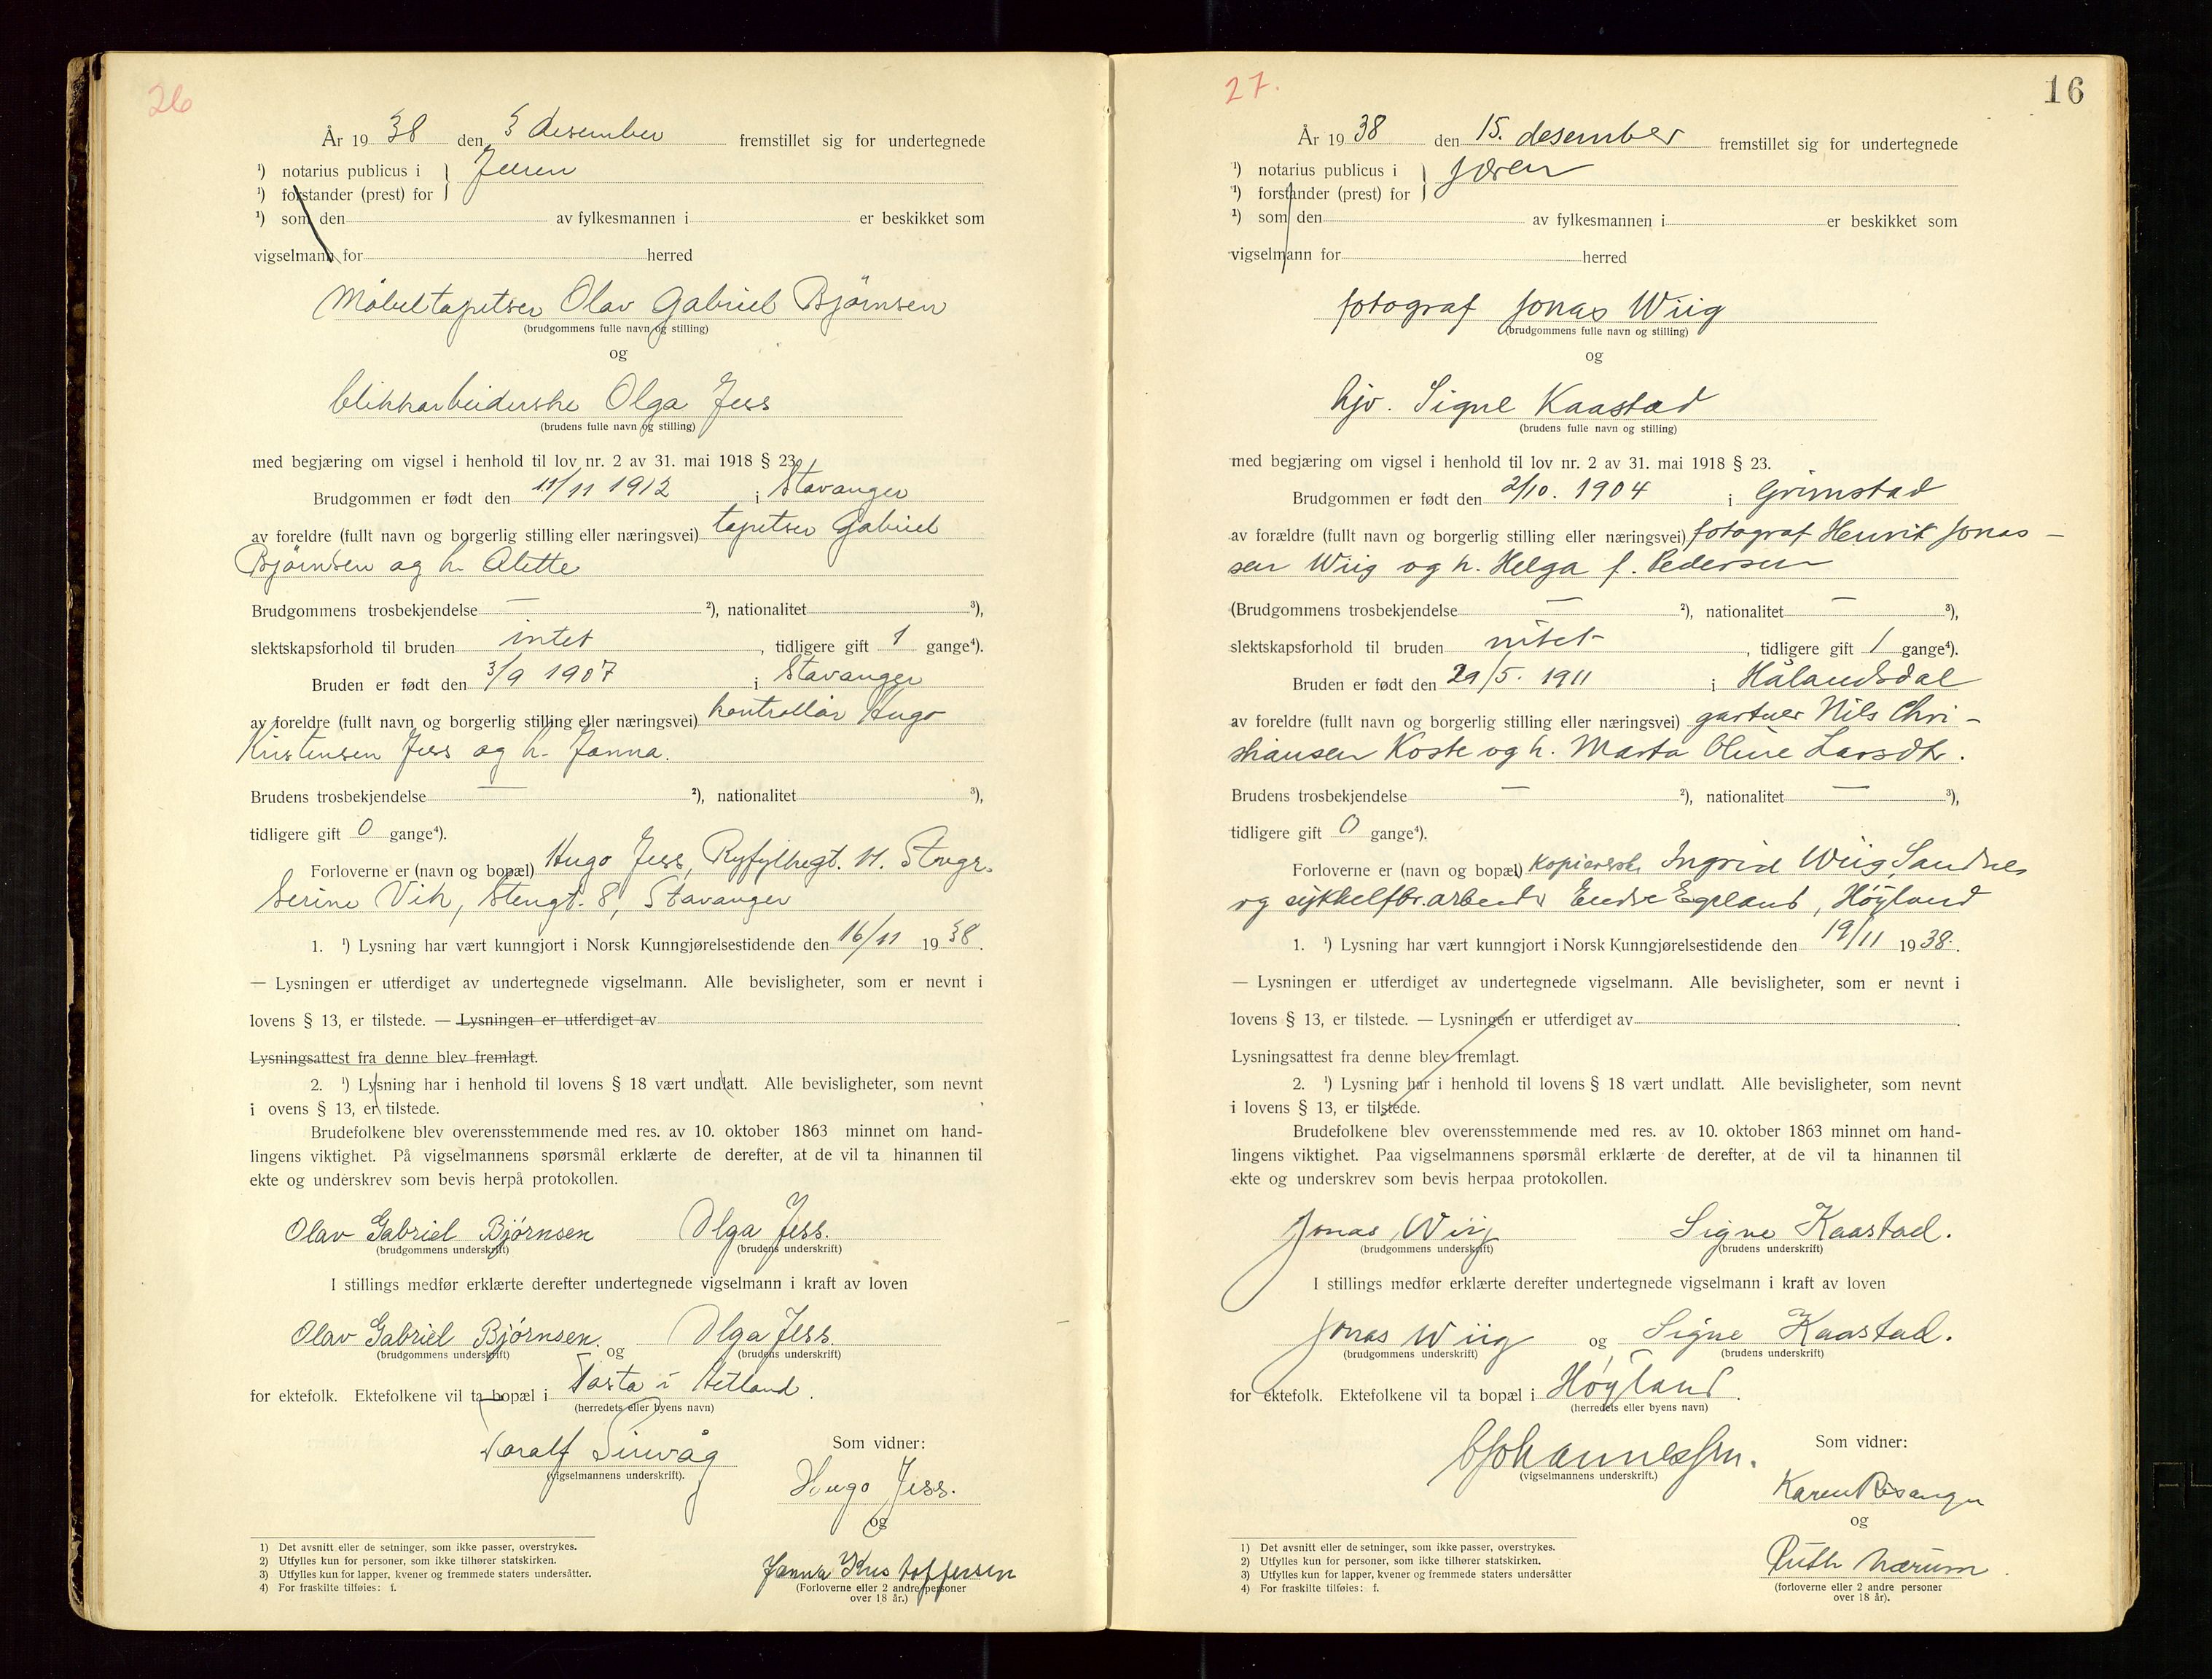 26
År 1938 den 3 desember fremstillet sig for undertegnede
¹) notarius publicus i } Jæren
¹) forstander (prest) for
¹) som den av fylkesmannen i er beskikket som
vigselmann for herred
Møbeltapetser Olav Gabriel Bjørnsen
(brudgommens fulle navn og stilling)
og
blikkarbeiderske Olga Jess
(brudens fulle navn og stilling)
med begjæring om vigsel i henhold til lov nr. 2 av 31. mai 1918 § 23.
Brudgommen er født den 11/11 1912 i Stavanger
av foreldre (fullt navn og borgerlig stilling eller næringsvei) tapetser Gabriel
Bjørnsen og h. Alette
Brudgommens trosbekjendelse — ²), nationalitet ³),
slektskapsforhold til bruden intet , tidligere gift 1 gange⁴).
Bruden er født den 3/9 1907 i Stavanger
av foreldre (fullt navn og borgerlig stilling eller næringsvei) kontrollør Hugo
Kristensen Jess og h. Janna.
Brudens trosbekjendelse — ²), nationalitet ³),
tidligere gift 0 gange⁴).
Forloverne er (navn og bopæl) Hugo Jess, Ryfylkegt. 11. Stvgr.
Serine Vik, Stengt. 8, Stavanger
1. ¹) Lysning har vært kunngjort i Norsk Kunngjørelsestidende den 16/11 1938.
— Lysningen er utferdiget av undertegnede vigselmann. Alle bevisligheter, som er nevnt i
lovens § 13, er tilstede. — Lysningen er utferdiget av
Lysningsattest fra denne blev fremlagt.
2. ¹) Lysning har i henhold til lovens § 18 vært undlatt. Alle bevisligheter, som nevnt
i ovens § 13, er tilstede.
Brudefolkene blev overensstemmende med res. av 10. oktober 1863 minnet om hand-
lingens viktighet. På vigselmannens spørsmål erklærte de derefter, at de vil ta hinannen til
ekte og underskrev som bevis herpå protokollen.
Olav Gabriel Bjørnsen Olga Jess.
(brudgommens underskrift) (brudens underskrift)
I stillings medfør erklærte derefter undertegnede vigselmann i kraft av loven
Olav Gabriel Bjørnsen. og Olga Jess.
(brudgommens underskrift) (brudens underskrift)
for ektefolk. Ektefolkene vil ta bopæl i Tasta i Hetland.
(herredets eller byens navn)
Toralf Sirevåg
(vigselmannens underskrift).
Som vidner:
Hugo Jess.
og
Janna Kristoffersen
(Forloverne eller 2 andre personer
over 18 år.)
1) Det avsnitt eller de setninger, som ikke passer, overstrykes.
2) Utfylles kun for personer, som ikke tilhører statskirken.
3) Utfylles kun for lapper, kvener og fremmede staters undersåtter.
4) For fraskilte tilføies: f.
27.
16
År 1938 den 15. desember fremstillet sig for undertegnede
¹) notarius publicus i } Jæren
¹) forstander (prest) for
¹) som den av fylkesmannen i er beskikket som
vigselmann for herred
fotograf Jonas Wiig
(brudgommens fulle navn og stilling)
og
hjv. Signe Kaastad
(brudens fulle navn og stilling)
med begjæring om vigsel i henhold til lov nr. 2 av 31. mai 1918 § 23.
Brudgommen er født den 2/10. 1904 i Grimstad
av forældre (fullt navn og borgerlig stilling eller næringsvei) fotograf Henrik Jonas-
sen Wiig og h. Helga f. Pedersen
(Brudgommens trosbekjendelse — ²), nationalitet — ³),
slektskapsforhold til bruden intet , tidligere gift 1 gange⁴).
Bruden er født den 29/5. 1911 i Hålandsdal
av foreldre (fullt navn og borgerlig stilling eller næringsvei) gartner Nils Chri-
stiansen Koste og h. Marta Oline Larsdtr.
Brudens trosbekjendelse — ²), nationalitet — ³),
tidligere gift 0 gange⁴).
Forloverne er (navn og bopæl) kopierersk Ingrid Wiig, Sandnes
og sykkelfbr.arbeider Endre Egeland, Høyland
1. ¹) Lysning har vært kunngjort i Norsk Kunngjørelsestidende den 19/11 1938.
— Lysningen er utferdiget av undertegnede vigselmann. Alle bevisligheter, som er nevnt i
lovens § 13, er tilstede. — Lysningen er utferdiget av .
Lysningsattest fra denne blev fremlagt.
2. ¹) Lysning har i henhold til lovens § 18 vært undlatt. Alle bevisligheter, som nevnt
i lovens § 13, er tilstede.
Brudefolkene blev overensstemmende med res. av 10. oktober 1863 minnet om hand-
lingens viktighet. Paa vigselmannens spørsmål erklærte de derefter, at de vil ta hinannen til
ekte og underskrev som bevis herpaa protokollen.
Jonas Wiig Signe Kaastad.
(brudgommens underskrift) (brudens underskrift)
I stillings medfør erklærte derefter undertegnede vigselmann i kraft av loven
Jonas Wiig og Signe Kaastad.
(brudgommens underskrift) (brudens underskrift)
for ektefolk. Ektefolkene vil ta bopæl i Høyland.
(herredets eller byens navn)
Johannessen.
(vigselmannens underskrift.)
Som vidner:
Karen Risanger
og
Ruth Nærum
(forloverne eller 2 andre personer
over 18 år).
1) Det avsnitt eller de setninger, som ikke passer, overstrykes.
2) Utfylles kun for personer, som ikke tilhører statskirken.
3) Utfylles kun for lapper, kvener og fremmede staters undersåtter
4) For fraskilte tilføies: f.